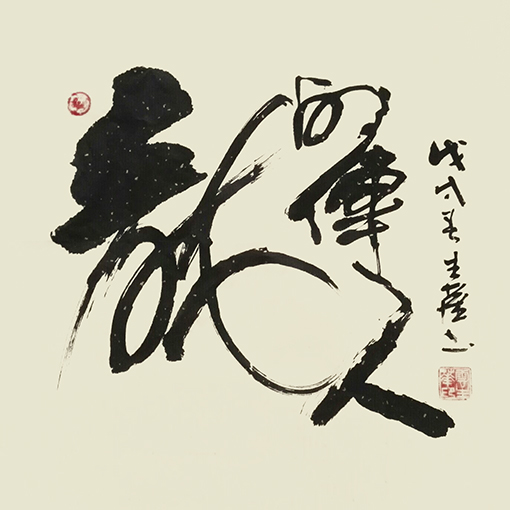 龍的傳人
戊戌春